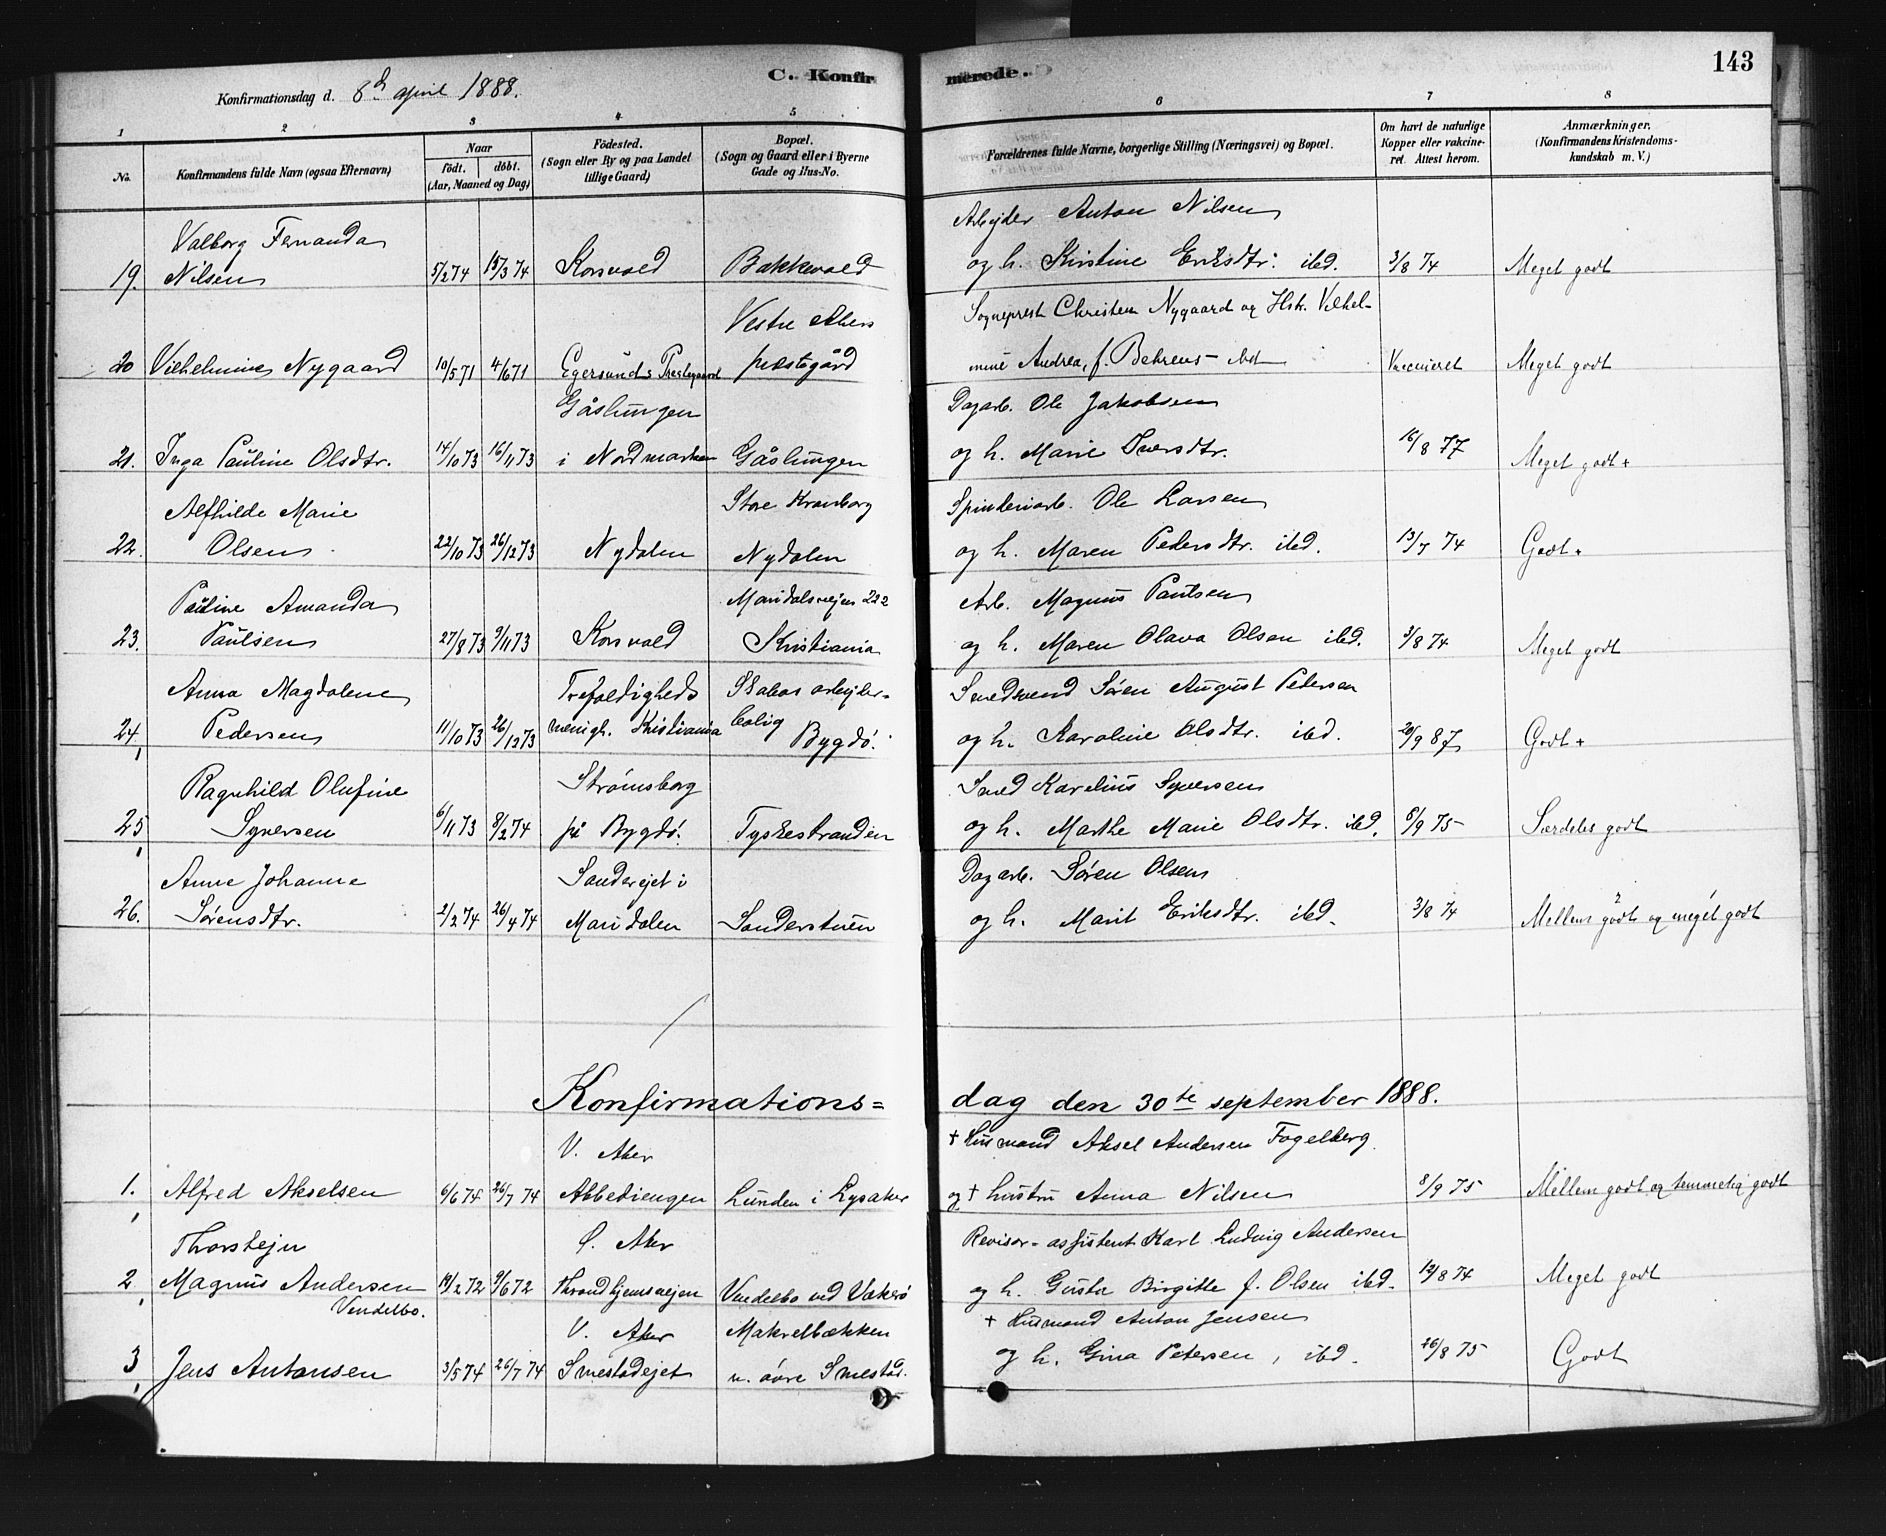 143
C. Konfirmerede.
Konfirmationsdag d. 8de april 1888.
1 2 3 4 5 6 7 8
No.
Konfirmandens fulde Navn (ogsaa Efternavn)
Naar
født. døbt.
(Aar, Maaned og Dag)
Fødested.
(Sogn eller By og paa Landet
tillige Gaard)
Bopæl.
(Sogn og Gaard eller i Byerne
Gade og Hus-No.
Forældrenes fulde Navne, borgerlige Stilling (Næringsvei) og Bopæl.
Om havt de naturlige
Kopper eller vakcine-
ret. Attest herom.
Anmærkninger.
(Konfirmandens Kristendoms-
kundskab m. V.)
Valborg Fernanda Arbejder Anton Nilsen
19. Nilsen 5/2 74 15/3 74 Korsvold Bakkevold og h. Kirstine Eriksdtr. ibd. 3/8 74 Meget godt
Vestre Akers Sogneprest Christen Nygaard og Hstr. Vilhel-
20 Vilhelmine Nygaard 10/5 71 4/6 71 Egersunds Prestegaard prestegård mine Andrea, f. Behrens ibd Vaccineret Meget godt
Gåslungen Dagarb. Ole Jakobsen
21. Inga Pauline Olsdtr. 14/10 73 16/11 73 i Nordmarken Gåslungen og h. Marie Iversdtr. 16/8 77 Meget godt +
Alfhilde Marie Store Kronborg Spinderiarb. Ole Larsen
22. Olsen 22/10 73 26/12 73 Nydalen Nydalen og h. Maren Pedersdtr. ibd. 13/7 74 Godt +
Pauline Amanda Maridalsvejen 222 Arb. Magnus Paulsen
23. Paulsen 27/8 73 9/11 73 Korsvold Kristiania og h. Maren Olava Olsen ibd. 3/8 74 Meget godt
Anna Magdalene Trefoldigheds Skabos arbejder- Smedsvend Søren August Pedersen
24. Pedersen 11/10 73 26/12 73 menigh. Kristiania bolig Bygdø. og h. Karoline Olsdtr. ibd. 20/9 87 Godt +
Ragnhild Olufine Strømsborg Smed Karelius Syversen
25 Syversen 6/11 73 8/2 74 på Bygdø. Tyskestranden og h. Marthe Marie Olsdtr. ibd. 8/9 75 Særdeles godt
Anne Johanne Sanderejet i Dagarb. Søren Olsen
26. Sørensdtr. 2/2 74 26/4 74 Maridalen Sanderstuen og h. Marit Eriksdtr. ibd. 3/8 74 Mellem godt og meget godt
Konfirmations=dag den 30te september 1888.
V. Aker + Husmand Aksel Andersen Fogelberg
1. Alfred Akselsen 6/6 74 26/7 74 Abbediengen Lunden i Lysaker og + hustru Anna Nilsen 8/9 75 Mellem godt og temmelig godt
Thorstejn Ø. Aker Revisor-assistent Karl Ludvig Andersen
2 Magnus Andersen 19/2 72 9/6 72 Throndhjemsvejen Vendelbo ved Vækerø og h. Gusta Birgitte f. Olsen ibd. 12/8 74 Meget godt
Vendelbo.
V. Aker Makrelbækken + Husmand Anton Jensen
3 Jens Antonsen 3/5 74 26/7 74 Smestadejet u. øvre Smestad. og h. Gina Petersen, ibd. 26/8 75 Godt